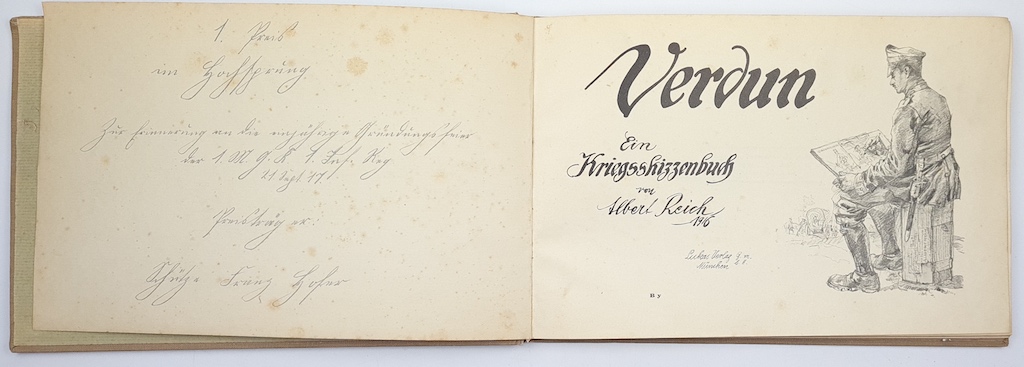 1. Preis
im Hochsprung.
Zur Erinnerung an die einjährige Gründungsfeier
der 1. M. G. K. 1. Inf. Reg
21 Sept. 17.
Preisträger.
Schütze Franz Hofer
Verdun
Ein
Kriegsskizzenbuch
von
Albert Reich
1916
Verlag
München
B y